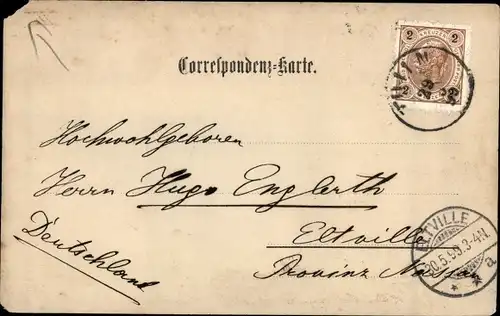 2 KREUZER 2
2 2
Correspondenz-Karte.
Hochwohlgeboren
Herrn Hugo Englerth
Eltville
Deutschland
Provinz Nassau
ELTVILLE
3-4N.
* * a